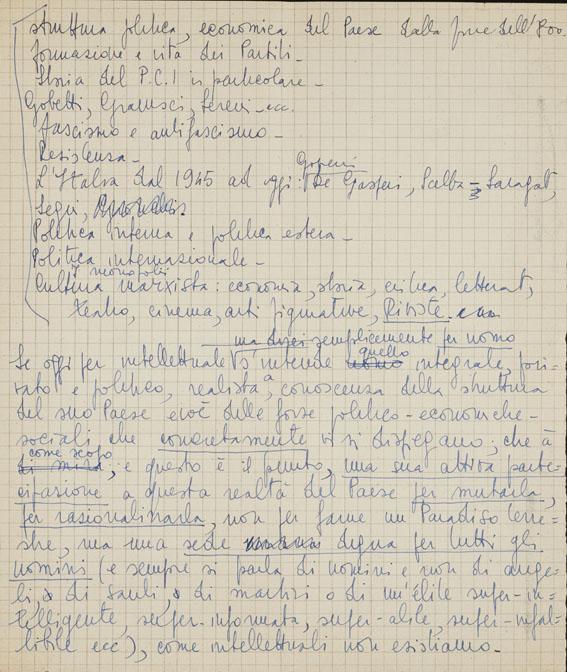 struttura politica, economica del Paese dalla fine dell'800.
formazione e vita dei Partiti -
Storia del P.C.I in particolare -
Gobetti, Gramsci, Sereni - ecc.
fascismo e antifascismo -
Resistenza -
Governi
L'Italia dal 1945 ad oggi: De Gasperi, Scelba = Saragat,
Segni,
Politica interna e politica estera -
Politica internazionale -
i monopoli
Cultura marxista: economia, storia, critica, letterat,
teatro, cinema, arti figurative, Riviste.
ma direi semplicemente per uomo
Se oggi per intellettuale s'intende quello integrale, pri-
vato e politico, realista, a conoscenza della struttura
del suo Paese e cioè delle forze politico-economiche-
sociali che concretamente vi si dispiegano; che à
come scopo
di mira, e questo è il punto, una sua attiva parte-
cipazione a questa realtà del Paese per mutarla,
per razionalizzarla, non per farne un Paradiso terre-
stre, ma una sede umana degna per tutti gli
uomini (e sempre si parla di uomini e non di ange-
li, o di santi, o di martiri o di un'élite super-in-
telligente, super-informata, super-abile, super-infal-
libile ecc), come intellettuali non esistiamo -